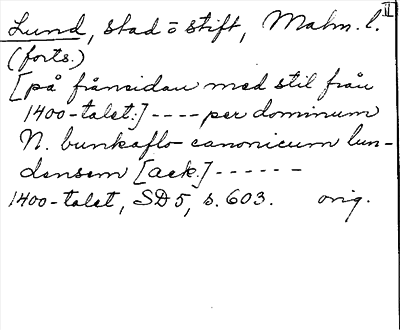 Lund, stad o stift, Malm. l. II
(forts.)
[på frånsidan med stil från
1400-talet:] ---- per dominum
N. bunkaflo canonicum lun-
densem [ack.] ------
1400-talet, SD 5, s. 603. orig.